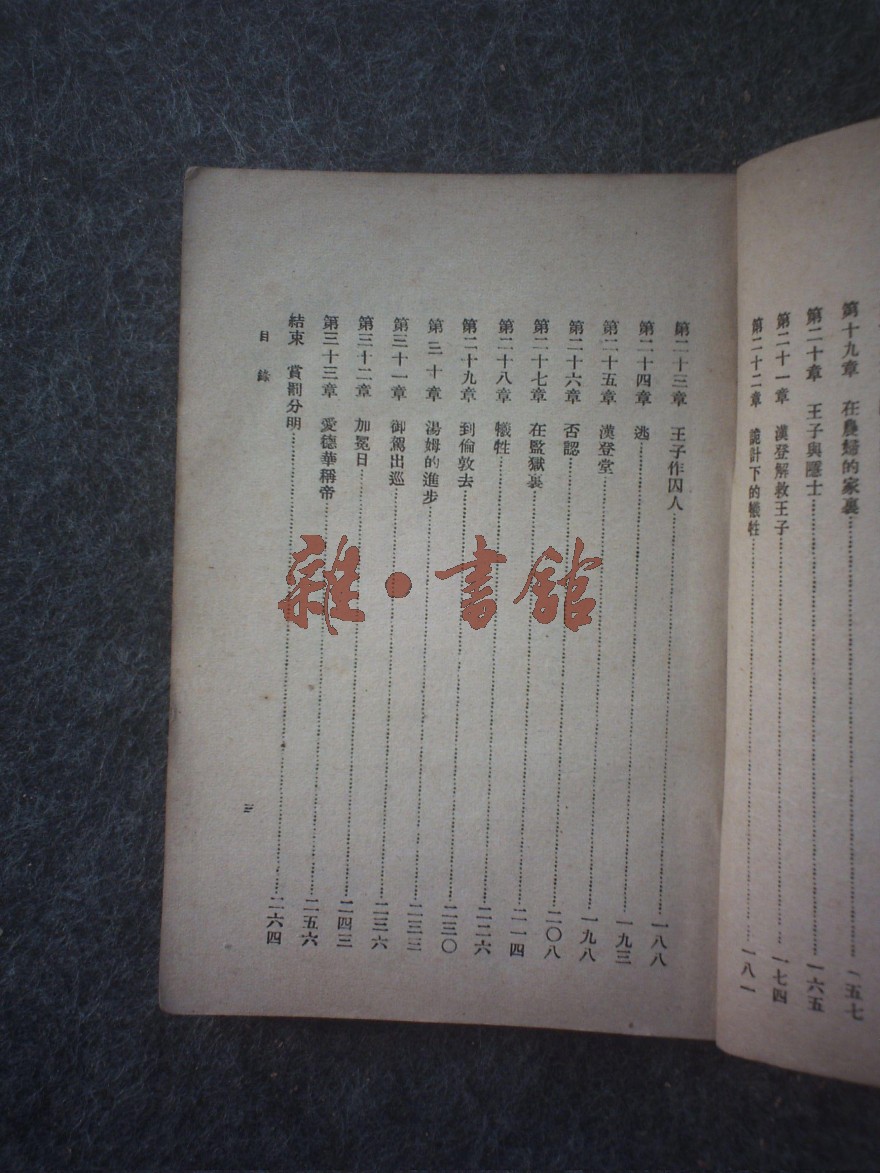 第十九章　在農婦的家裏……一五七
第二十章　王子與隱士……一六五
第二十一章　漢登解救王子……一七四
第二十二章　詭計下的犧牲……一八一
第二十三章　王子作囚人……一八八
第二十四章　逃……一九三
第二十五章　漢登堂……一九八
第二十六章　否認……二〇八
第二十七章　在監獄裏……二一四
第二十八章　犧牲……二二六
第二十九章　到倫敦去……二三〇
第三十章　湯姆的進步……二三三
第三十一章　御駕出巡……二三六
第三十二章　加冕日……二四三
第三十三章　愛德華稱帝……二五六
結束　賞罰分明……二六四
目錄
三
雜·書館